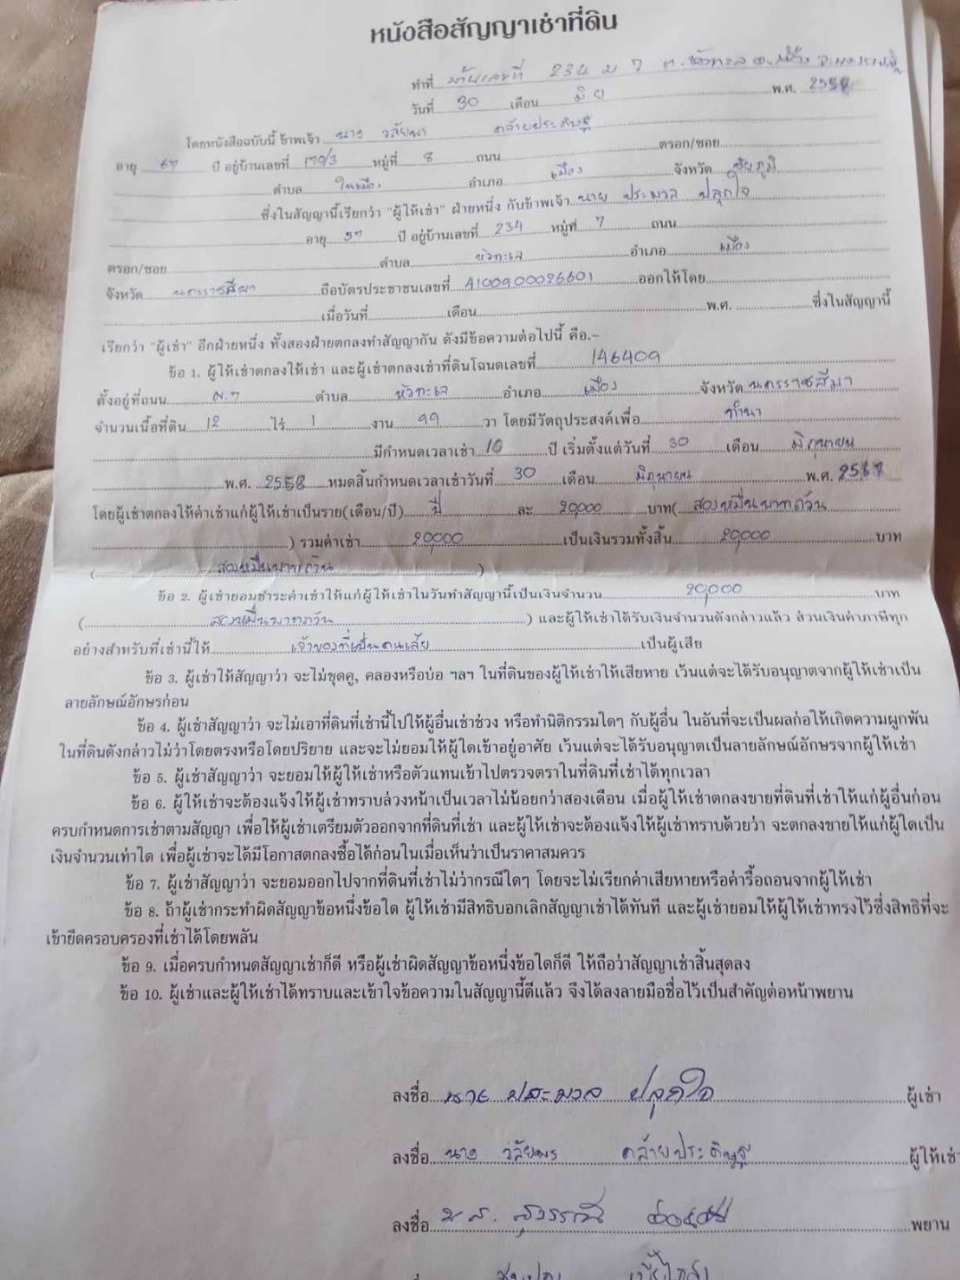 หนังสือสัญญาเช่าที่ดิน
ทำที่ บ้านเลขที่ 234 ม 7 ต.หัวทะเล อ.เมือง
วันที่ 30 เดือน มิย พ.ศ. 2558
โดยหนังสือฉบับนี้ ข้าพเจ้า นาง วลัยพร คล้ายประดิษฐ ตรอก/ซอย
อายุ 67 ปี อยู่บ้านเลขที่ 170/3 หมู่ที่ 8 ถนน
ตำบล ในเมือง อำเภอ เมือง จังหวัด ชัยภูมิ
ซึ่งในสัญญานี้เรียกว่า "ผู้ให้เช่า" ฝ่ายหนึ่ง กับข้าพเจ้า นาย ประมวล ปลุกใจ
อายุ 57 ปี อยู่บ้านเลขที่ 234 หมู่ที่ 7 ถนน
ตรอก/ซอย ตำบล หัวทะเล อำเภอ เมือง
จังหวัด นครราชสีมา ถือบัตรประชาชนเลขที่ 4100900026601 ออกให้โดย
เมื่อวันที่ เดือน พ.ศ. ซึ่งในสัญญานี้
เรียกว่า "ผู้เช่า" อีกฝ่ายหนึ่ง ทั้งสองฝ่ายตกลงทำสัญญากัน ดังมีข้อความต่อไปนี้ คือ.-
ข้อ 1. ผู้ให้เช่าตกลงให้เช่า และผู้เช่าตกลงเช่าที่ดินโฉนดเลขที่ 146409
ตั้งอยู่ที่ถนน ม.7 ตำบล หัวทะเล อำเภอ เมือง จังหวัด นครราชสีมา
จำนวนเนื้อที่ดิน 12 ไร่ 1 งาน 99 วา โดยมีวัตถุประสงค์เพื่อ ทำนา
มีกำหนดเวลาเช่า 10 ปี เริ่มตั้งแต่วันที่ 30 เดือน มิถุนายน
พ.ศ. 2558 หมดสิ้นกำหนดเวลาเช่าวันที่ 30 เดือน มิถุนายน พ.ศ. 2568
โดยผู้เช่าตกลงให้ค่าเช่าแก่ผู้ให้เช่าเป็นราย(เดือน/ปี) ปี ละ 20,000 บาท( สองหมื่นบาทถ้วน
) รวมค่าเช่า 20000 เป็นเงินรวมทั้งสิ้น 20000 บาท
( สองหมื่นบาทถ้วน )
ข้อ 2. ผู้เช่ายอมชำระค่าเช่าให้แก่ผู้ให้เช่าในวันทำสัญญานี้เป็นเงินจำนวน 20,000 บาท
( สองหมื่นบาทถ้วน ) และผู้ให้เช่าได้รับเงินจำนวนดังกล่าวแล้ว ส่วนเงินค่าภาษีทุก
อย่างสำหรับที่เช่านี้ให้ เจ้าของที่เป็นคนเสีย เป็นผู้เสีย
ข้อ 3. ผู้เช่าให้สัญญาว่า จะไม่ขุดคู, คลองหรือบ่อ ฯลฯ ในที่ดินของผู้ให้เช่าให้เสียหาย เว้นแต่จะได้รับอนุญาตจากผู้ให้เช่าเป็น
ลายลักษณ์อักษรก่อน
ข้อ 4. ผู้เช่าสัญญาว่า จะไม่เอาที่ดินที่เช่านี้ไปให้ผู้อื่นเช่าช่วง หรือทำนิติกรรมใดๆ กับผู้อื่น ในอันที่จะเป็นผลก่อให้เกิดความผูกพัน
ในที่ดินดังกล่าวไม่ว่าโดยตรงหรือโดยปริยาย และจะไม่ยอมให้ผู้ใดเข้าอยู่อาศัย เว้นแต่จะได้รับอนุญาตเป็นลายลักษณ์อักษรจากผู้ให้เช่า
ข้อ 5. ผู้เช่าสัญญาว่า จะยอมให้ผู้ให้เช่าหรือตัวแทนเข้าไปตรวจตราในที่ดินที่เช่าได้ทุกเวลา
ข้อ 6. ผู้ให้เช่าจะต้องแจ้งให้ผู้เช่าทราบล่วงหน้าเป็นเวลาไม่น้อยกว่าสองเดือน เมื่อผู้ให้เช่าตกลงขายที่ดินที่เช่าให้แก่ผู้อื่นก่อน
ครบกำหนดการเช่าตามสัญญา เพื่อให้ผู้เช่าเตรียมตัวออกจากที่ดินที่เช่า และผู้ให้เช่าจะต้องแจ้งให้ผู้เช่าทราบด้วยว่า จะตกลงขายให้แก่ผู้ใดเป็น
เงินจำนวนเท่าใด เพื่อผู้เช่าจะได้มีโอกาสตกลงซื้อได้ก่อนในเมื่อเห็นว่าเป็นราคาสมควร
ข้อ 7. ผู้เช่าสัญญาว่า จะยอมออกไปจากที่ดินที่เช่าไม่ว่ากรณีใดๆ โดยจะไม่เรียกค่าเสียหายหรือค่ารื้อถอนจากผู้ให้เช่า
ข้อ 8. ถ้าผู้เช่ากระทำผิดสัญญาข้อหนึ่งข้อใด ผู้ให้เช่ามีสิทธิบอกเลิกสัญญาเช่าได้ทันที และผู้เช่ายอมให้ผู้ให้เช่าทรงไว้ซึ่งสิทธิที่จะ
เข้ายึดครอบครองที่เช่าได้โดยพลัน
ข้อ 9. เมื่อครบกำหนดสัญญาเช่าก็ดี หรือผู้เช่าผิดสัญญาข้อหนึ่งข้อใดก็ดี ให้ถือว่าสัญญาเช่าสิ้นสุดลง
ข้อ 10. ผู้เช่าและผู้ให้เช่าได้ทราบและเข้าใจข้อความในสัญญานี้ดีแล้ว จึงได้ลงลายมือชื่อไว้เป็นสำคัญต่อหน้าพยาน
ลงชื่อ นาย ประมวล ปลุกใจ ผู้เช่า
ลงชื่อ นาง วลัยพร คล้ายประดิษฐ ผู้ให้เช่า
ลงชื่อ น.ส. สุวรรณี พยาน